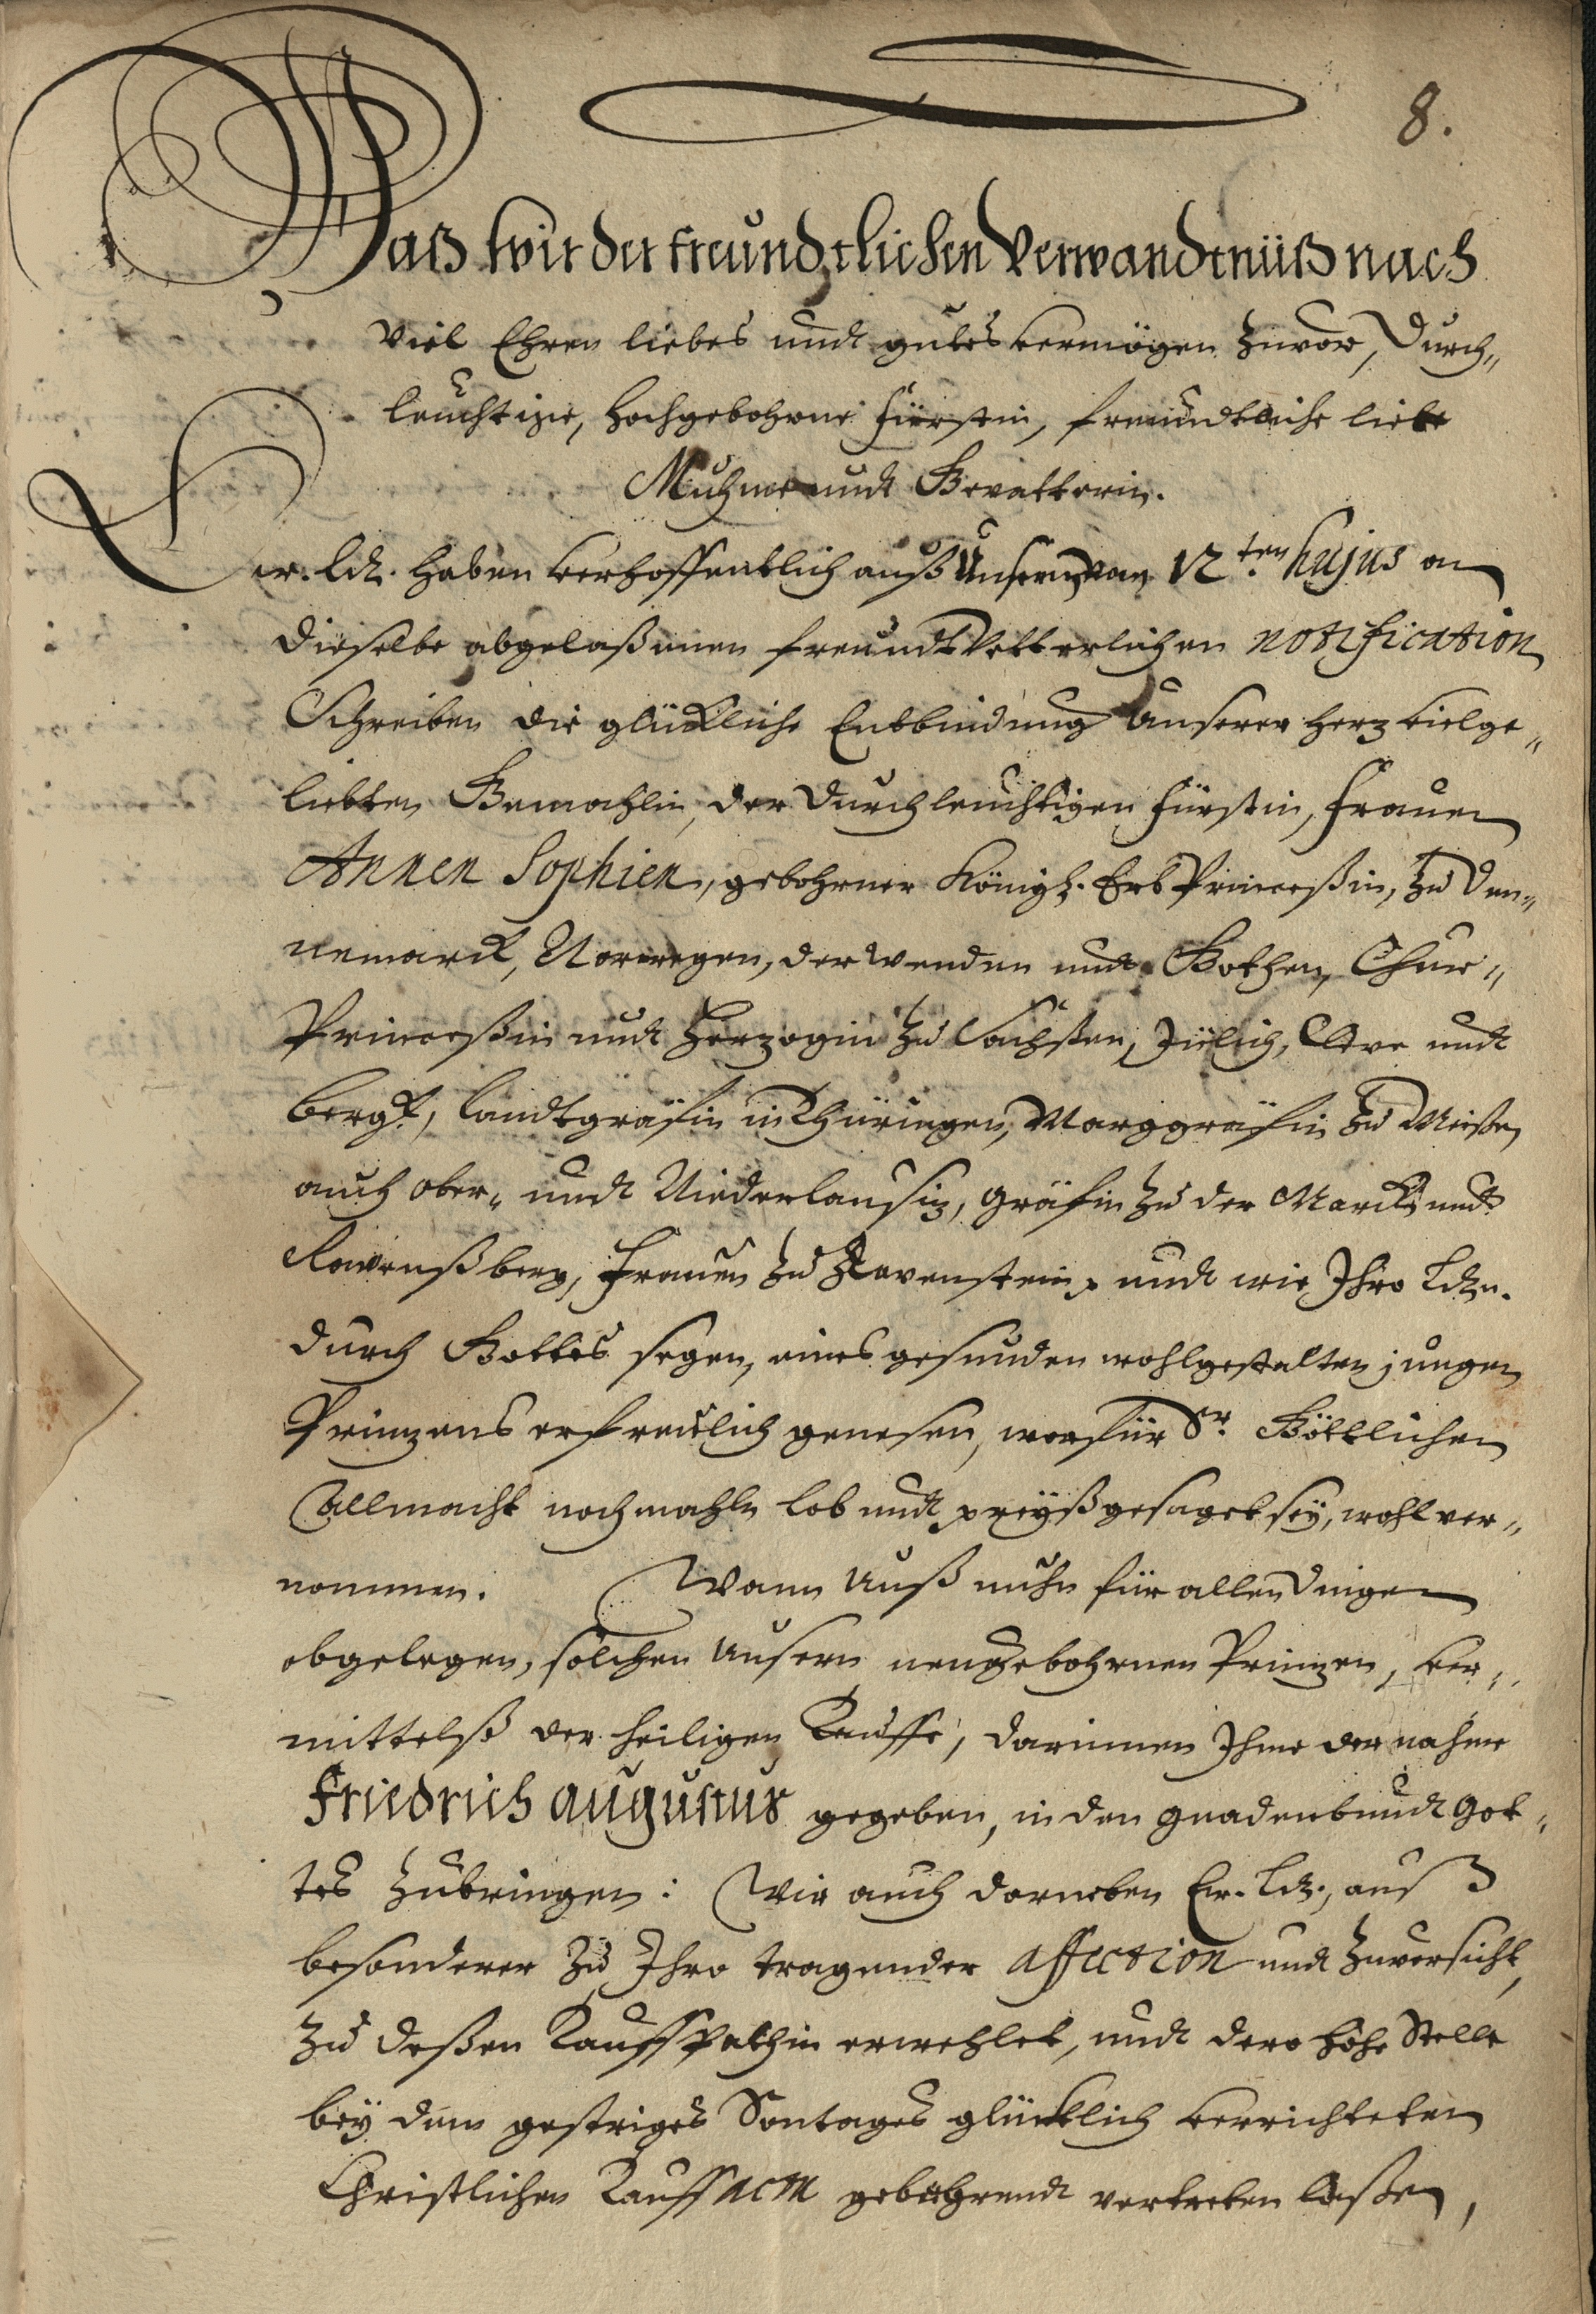 8.
Waß wir der freundtlichen Verwandtnüß nach
Viel Ehren liebes undt gutes vermögen zuvor, Durch„
leuchtige, hochgebohrne Fürstin, freundtliche liebe
Muhme undt Gevatterin.
Ewr. Ld. haben verhoffentlich auß Unserm vom 12ten hujus an
dieselbe abgelaßenen freundt Vetterlichen notification
Schreiben die glückliche Entbindung Unserer herz vielge„
liebten Gemahlin, der Durchleuchtigen Fürstin, Frauen
Annen Sophien, gebohrner Königl. Erb Princeßin, zu Den„
nemarck, Norwegen, der Wenden undt Gothen, Chur„
Princeßin undt Herzogin zu Sachßen, Jülich, Cleve undt
Bergk, Landtgräfin in Thüringen, Marggräfin zu Meißen,
auch Ober„ undt Niederlausiz, Gräfin zu der Marck undt
Ravenßberg, Frauen zu Ravenstein, undt wie Ihro Ldn.
durch Gottes segen, eines gesunden wohlgestalten jungen
Prinzens erfreulich genesen, worfür Sr. Göttlichen
Allmacht nochmahln lob undt preyß gesaget sey, wohl ver„
nommen. Wann Unß nuhn für allen Dingen
obgelegen, solchen Unsern neugebohrnen Prinzen, ver„
mittelß der heiligen Tauffe, darinnen Ihme der nahme
Friedrich Augustus gegeben, in den gnadenbundt Got„
tes zubringen: Wir auch darneben Ew. Ld., auß
besonderer zu Ihro tragender affection undt zuversicht,
zu deßen Tauffpathin erwehlet, undt dero hohe Stelle
bey dem gestriges Sontages glücklich verrichteten
Christlichen Tauffacm gebührendt vertreten laßen,